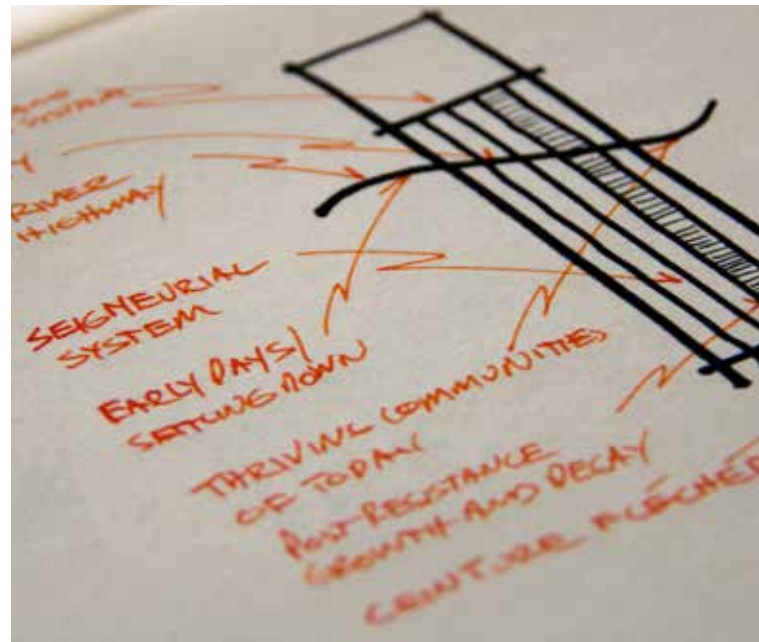 SYSTEM
RIVER
HIGHWAY
SEIGNEURIAL
SYSTEM
EARLY DAYS/
SETTLING DOWN
THRIVING COMMUNITIES
OF TODAY
POST-RESISTANCE
GROWTH AND DECAY
CEINTURE FLÉCHÉE